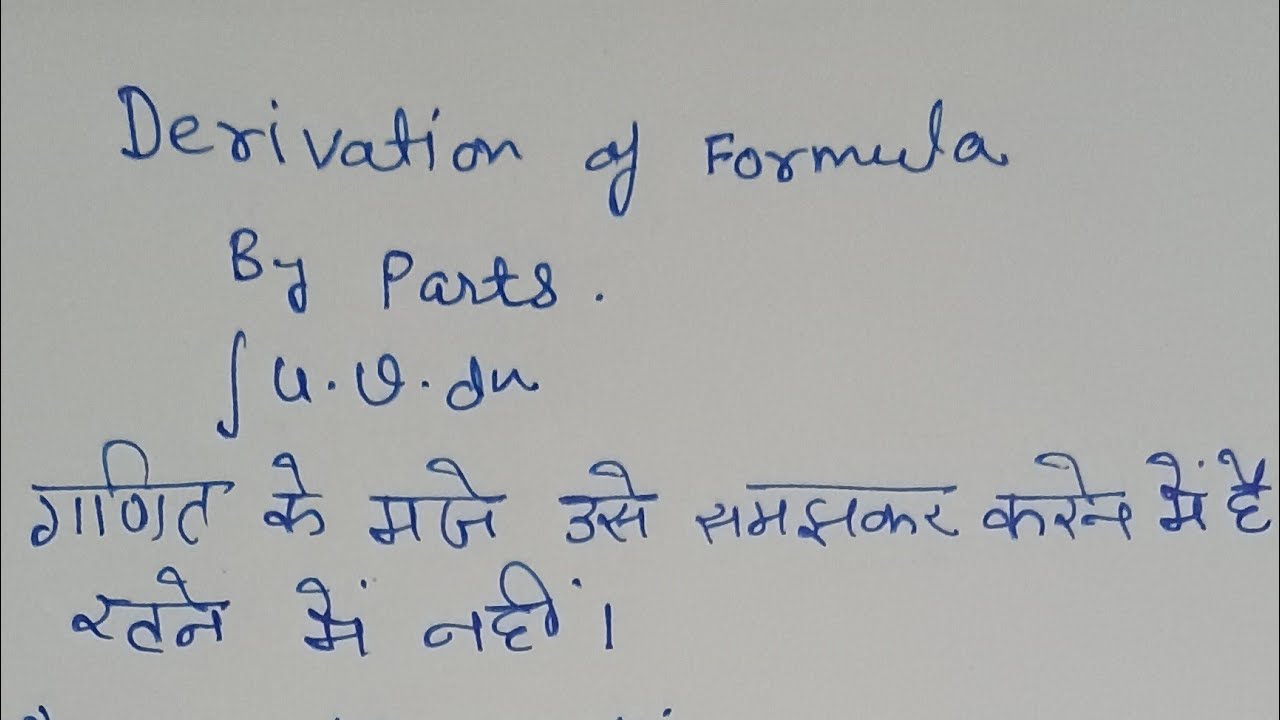 Derivation of Formula
By Parts.
∫u.v.dx
गणित के मजे उसे समझकर करने में है
रटने में नहीं।